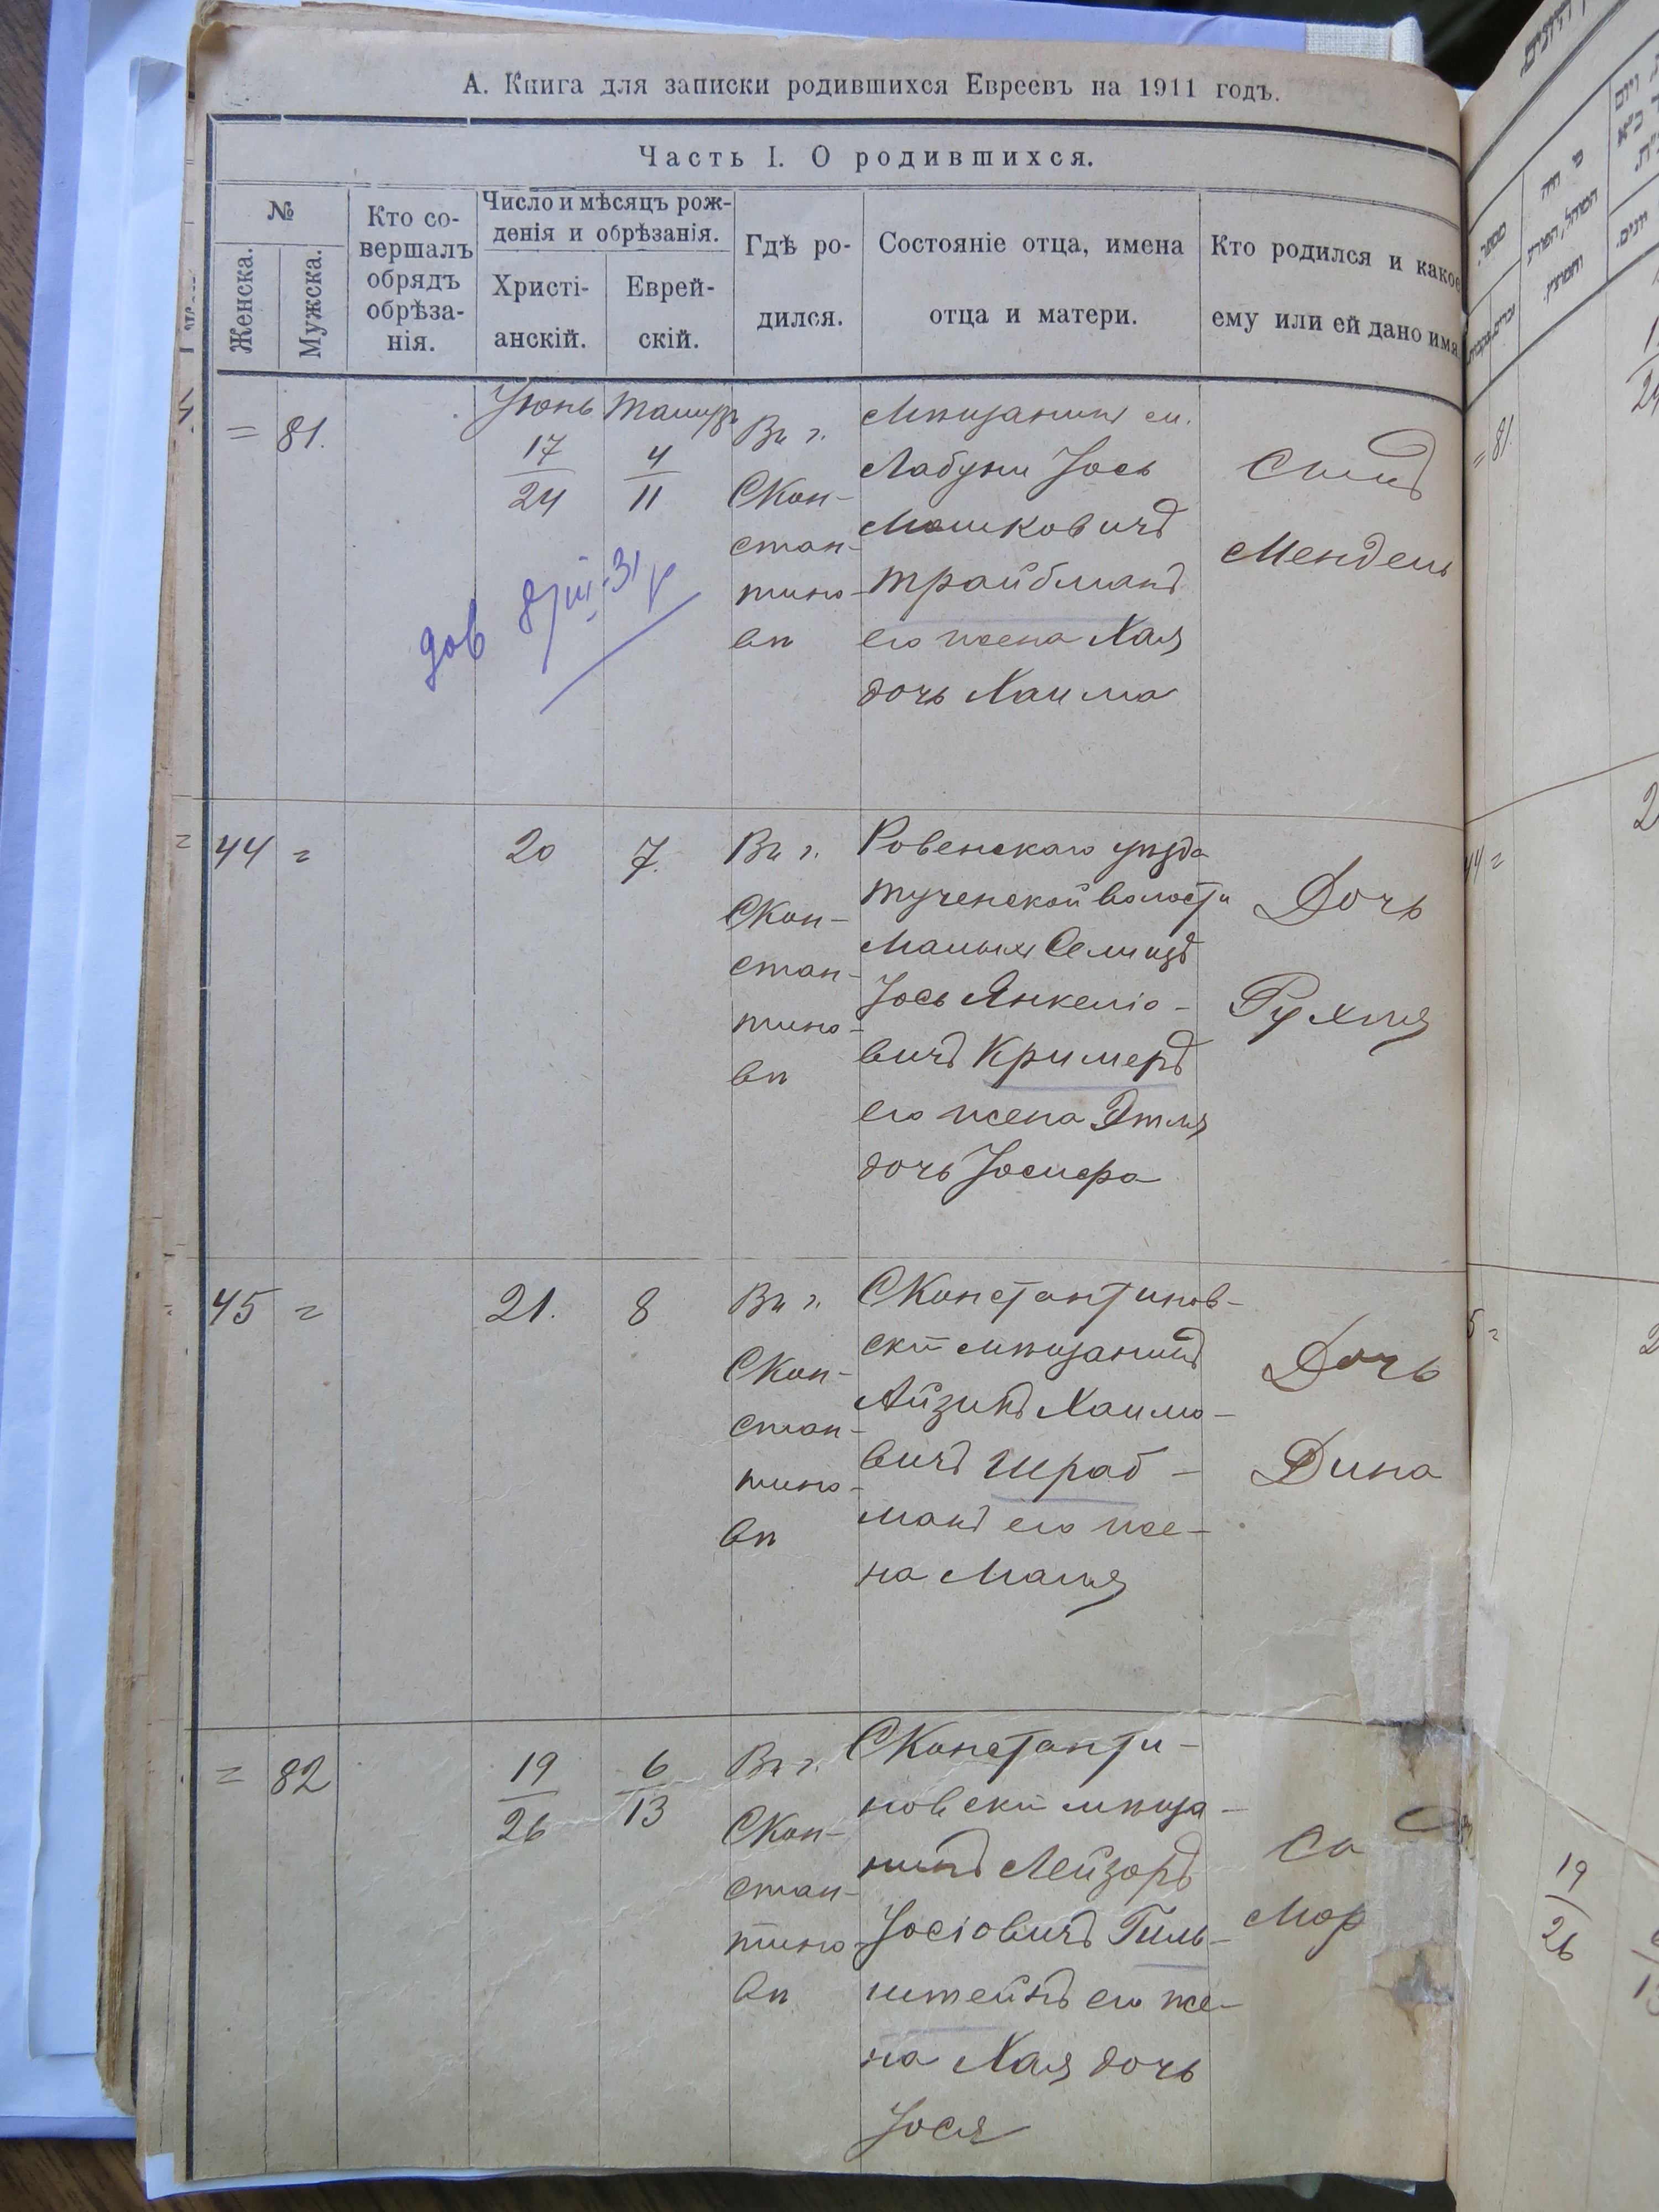 А. Книга для записки родившихся Евреевъ на 1911 годъ.
Часть I. О родившихся.
№
Женска.
Мужска.
Кто со-
вершалъ
обрядъ
обрѣза-
нія.
Число и мѣсяцъ рож-
денія и обрѣзанія.
Христі-
анскій.
Еврей-
скій.
Гдѣ ро-
дился.
Состояніе отца, имена
отца и матери.
Кто родился и какое
ему или ей дано имя
= 81.
Іюнь
17
24
4
11
Въ г.
СКон-
стан-
тино-
вѣ
Мѣщанинъ м.
Лабуни Іось
Мошковичъ
Трайбманъ
его жена Хая
дочь Хаима
Сынъ
Мендель
дов 8/III-31
44 =
20
7.
Въ г.
СКон-
стан-
тино-
вѣ
Ровенскаго уѣзда
Тученской волости
Іось Янкеліо-
вичъ Кримеръ
его жена Этля
дочь Іосифа
Дочь
Рухля
45 =
21.
8
Въ г.
СКон-
стан-
тино-
вѣ
СКонстантинов-
скій мѣщанинъ
Айзикъ Хаимо-
вичъ Шраб-
манъ его же-
на Маля
Дочь
Дина
= 82
19
26
6
13
Въ г.
СКон-
стан-
тино-
вѣ
СКонстанти-
новскій мѣща-
нинъ Лейзоръ
Іосіовичъ Гиль-
штейнъ его же-
на Хая дочь
Іося
= 81.
44 =
5 =
19
26